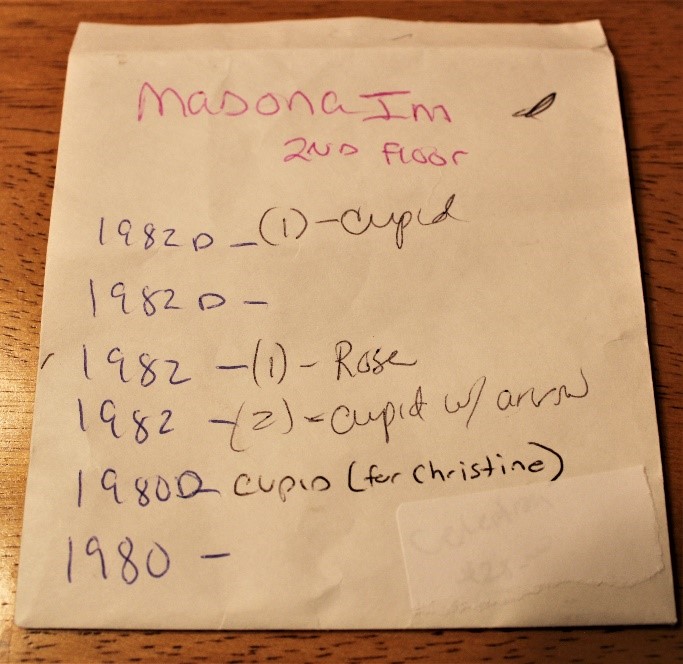 Madona Im
2ND Floor
1982 D - (1) - Cupid
1982 D -
1982 - (1) - Rose
1982 - (2) - Cupid w/ arrow
1980D CUPID (for Christine)
1980 -